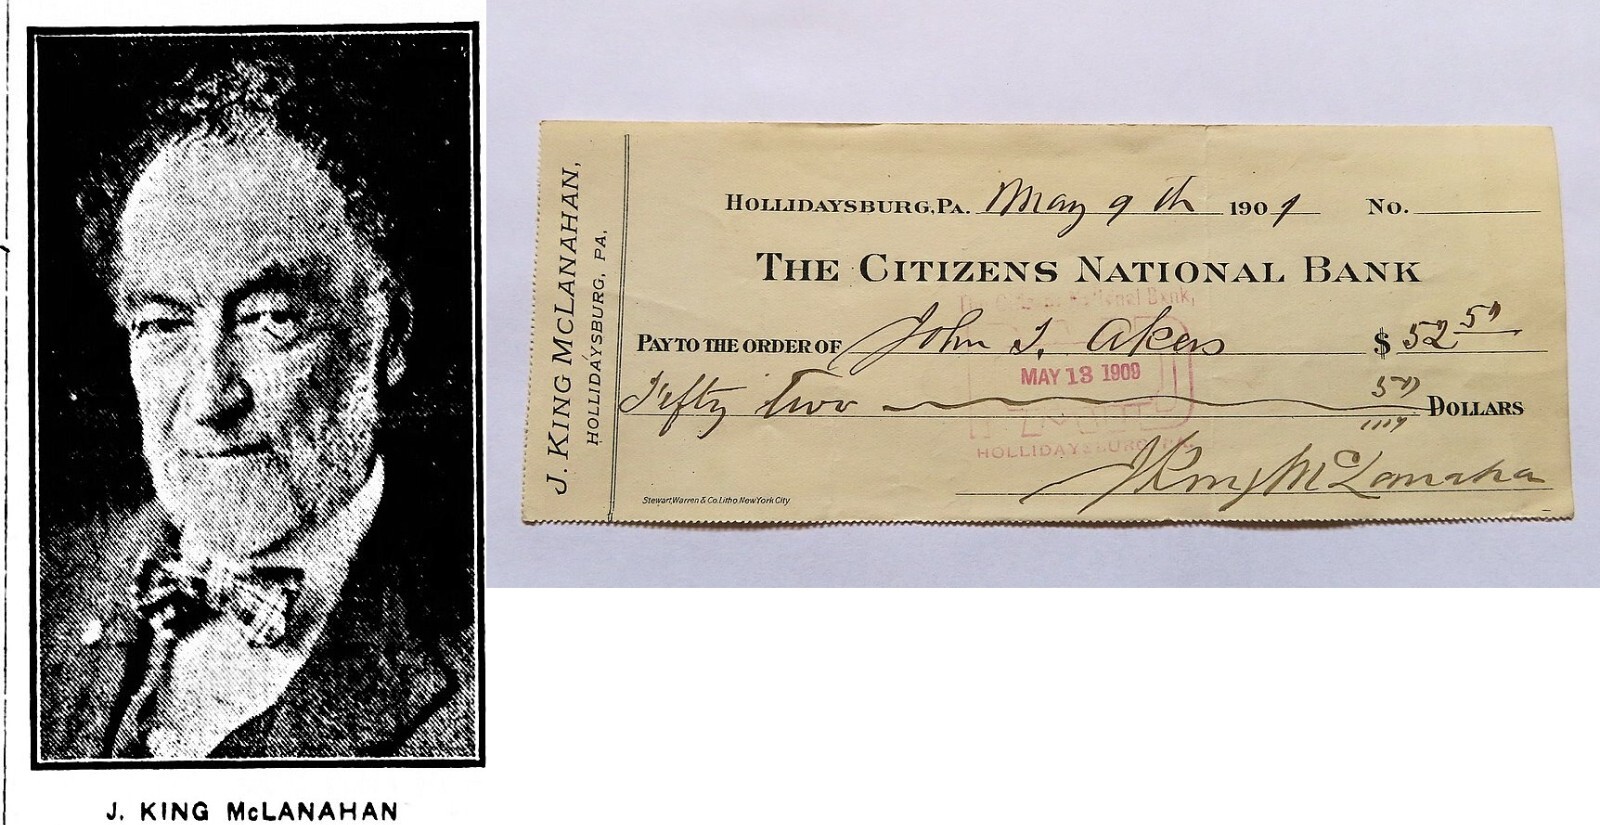 J. KING McLANAHAN
J. KING MCLANAHAN,
HOLLIDAYSBURG, PA.
HOLLIDAYSBURG, PA. May 9th 1909 No.
THE CITIZENS NATIONAL BANK
The Citizens National Bank,
PAY TO THE ORDER OF John I. Akers $ 52 50
MAY 13 1909
PAID
Fifty two 50 DOLLARS
HOLLIDAYSBURG, PA.
J King McLanahan
Stewart, Warren & Co. Litho. New York City